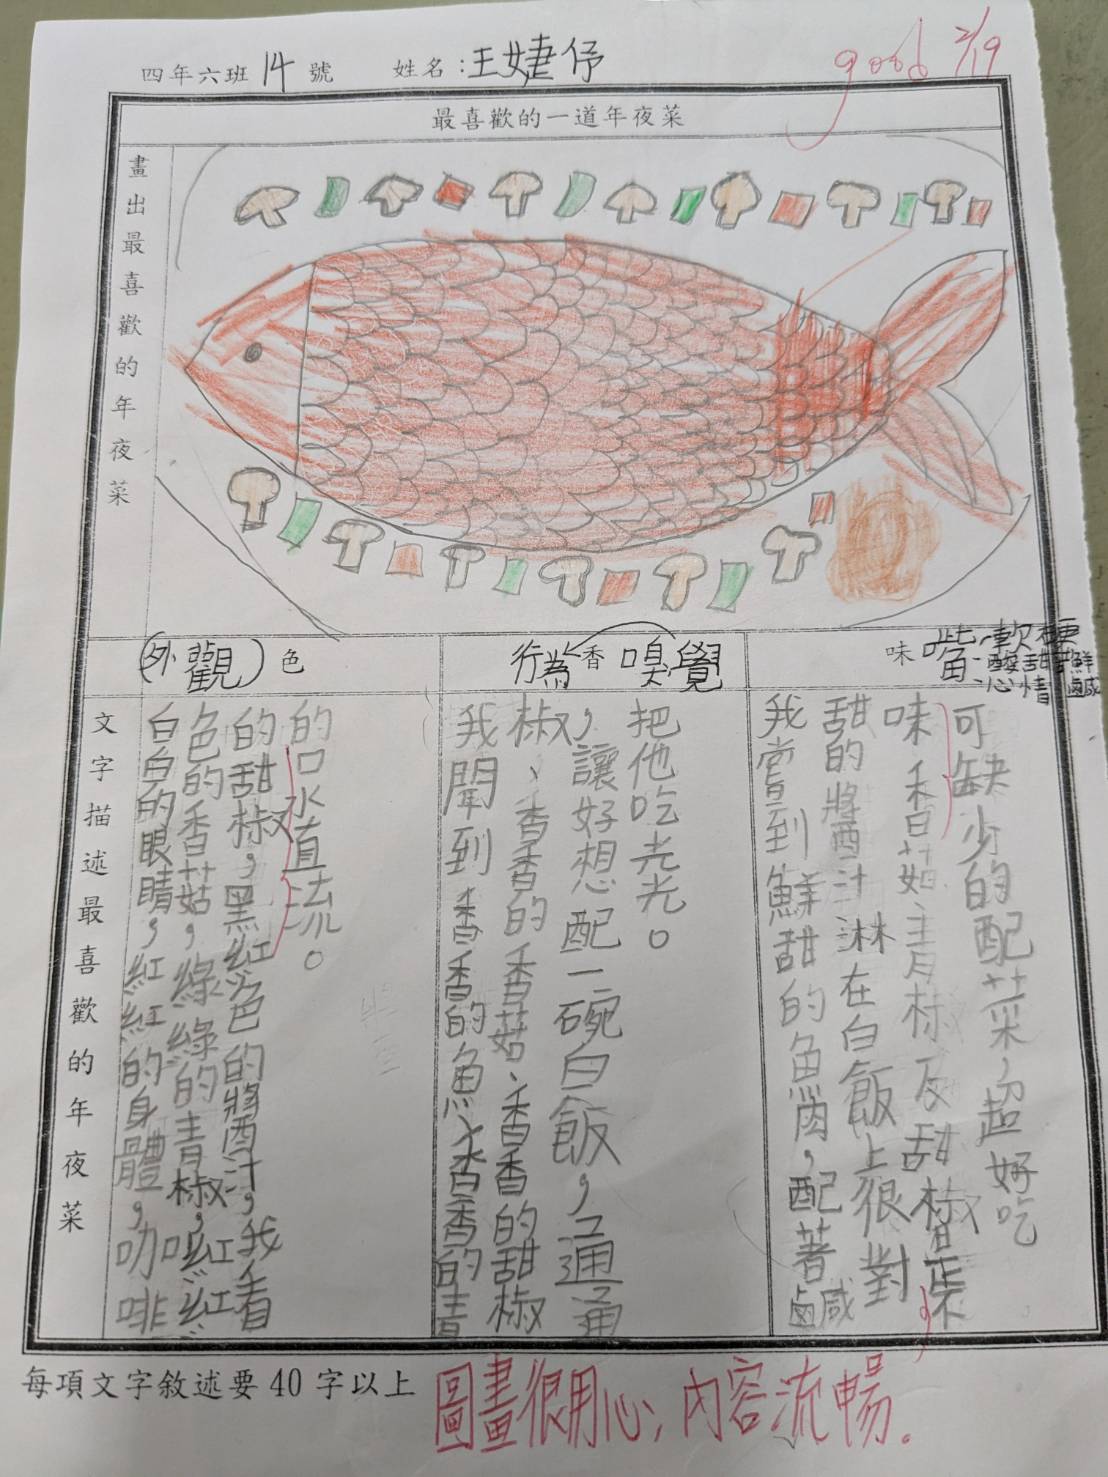 四年六班14號 姓名:王婕伃
good 2/19
最喜歡的一道年夜菜
畫出最喜歡的年夜菜
(外觀)色
行為香嗅覺
味嘴軟硬
酸甜鮮
情鹹
文字描述最喜歡的年夜菜
白白的眼睛,紅紅的身體,咖啡
色的香菇,綠綠的青椒,紅紅
的甜椒,黑紅色的醬汁,我看
的口水直流。
我聞到香香的魚、香香的青
椒、香香的香菇、香香的甜椒
,讓好想配一碗白飯,通通
把他吃光光。
我嘗到鮮甜的魚肉,配著鹹
甜的醬汁淋在白飯上很對
味香菇青椒及甜椒皆不
可缺少的配菜,超好吃
每項文字敘述要40字以上
圖畫很用心,內容流暢。